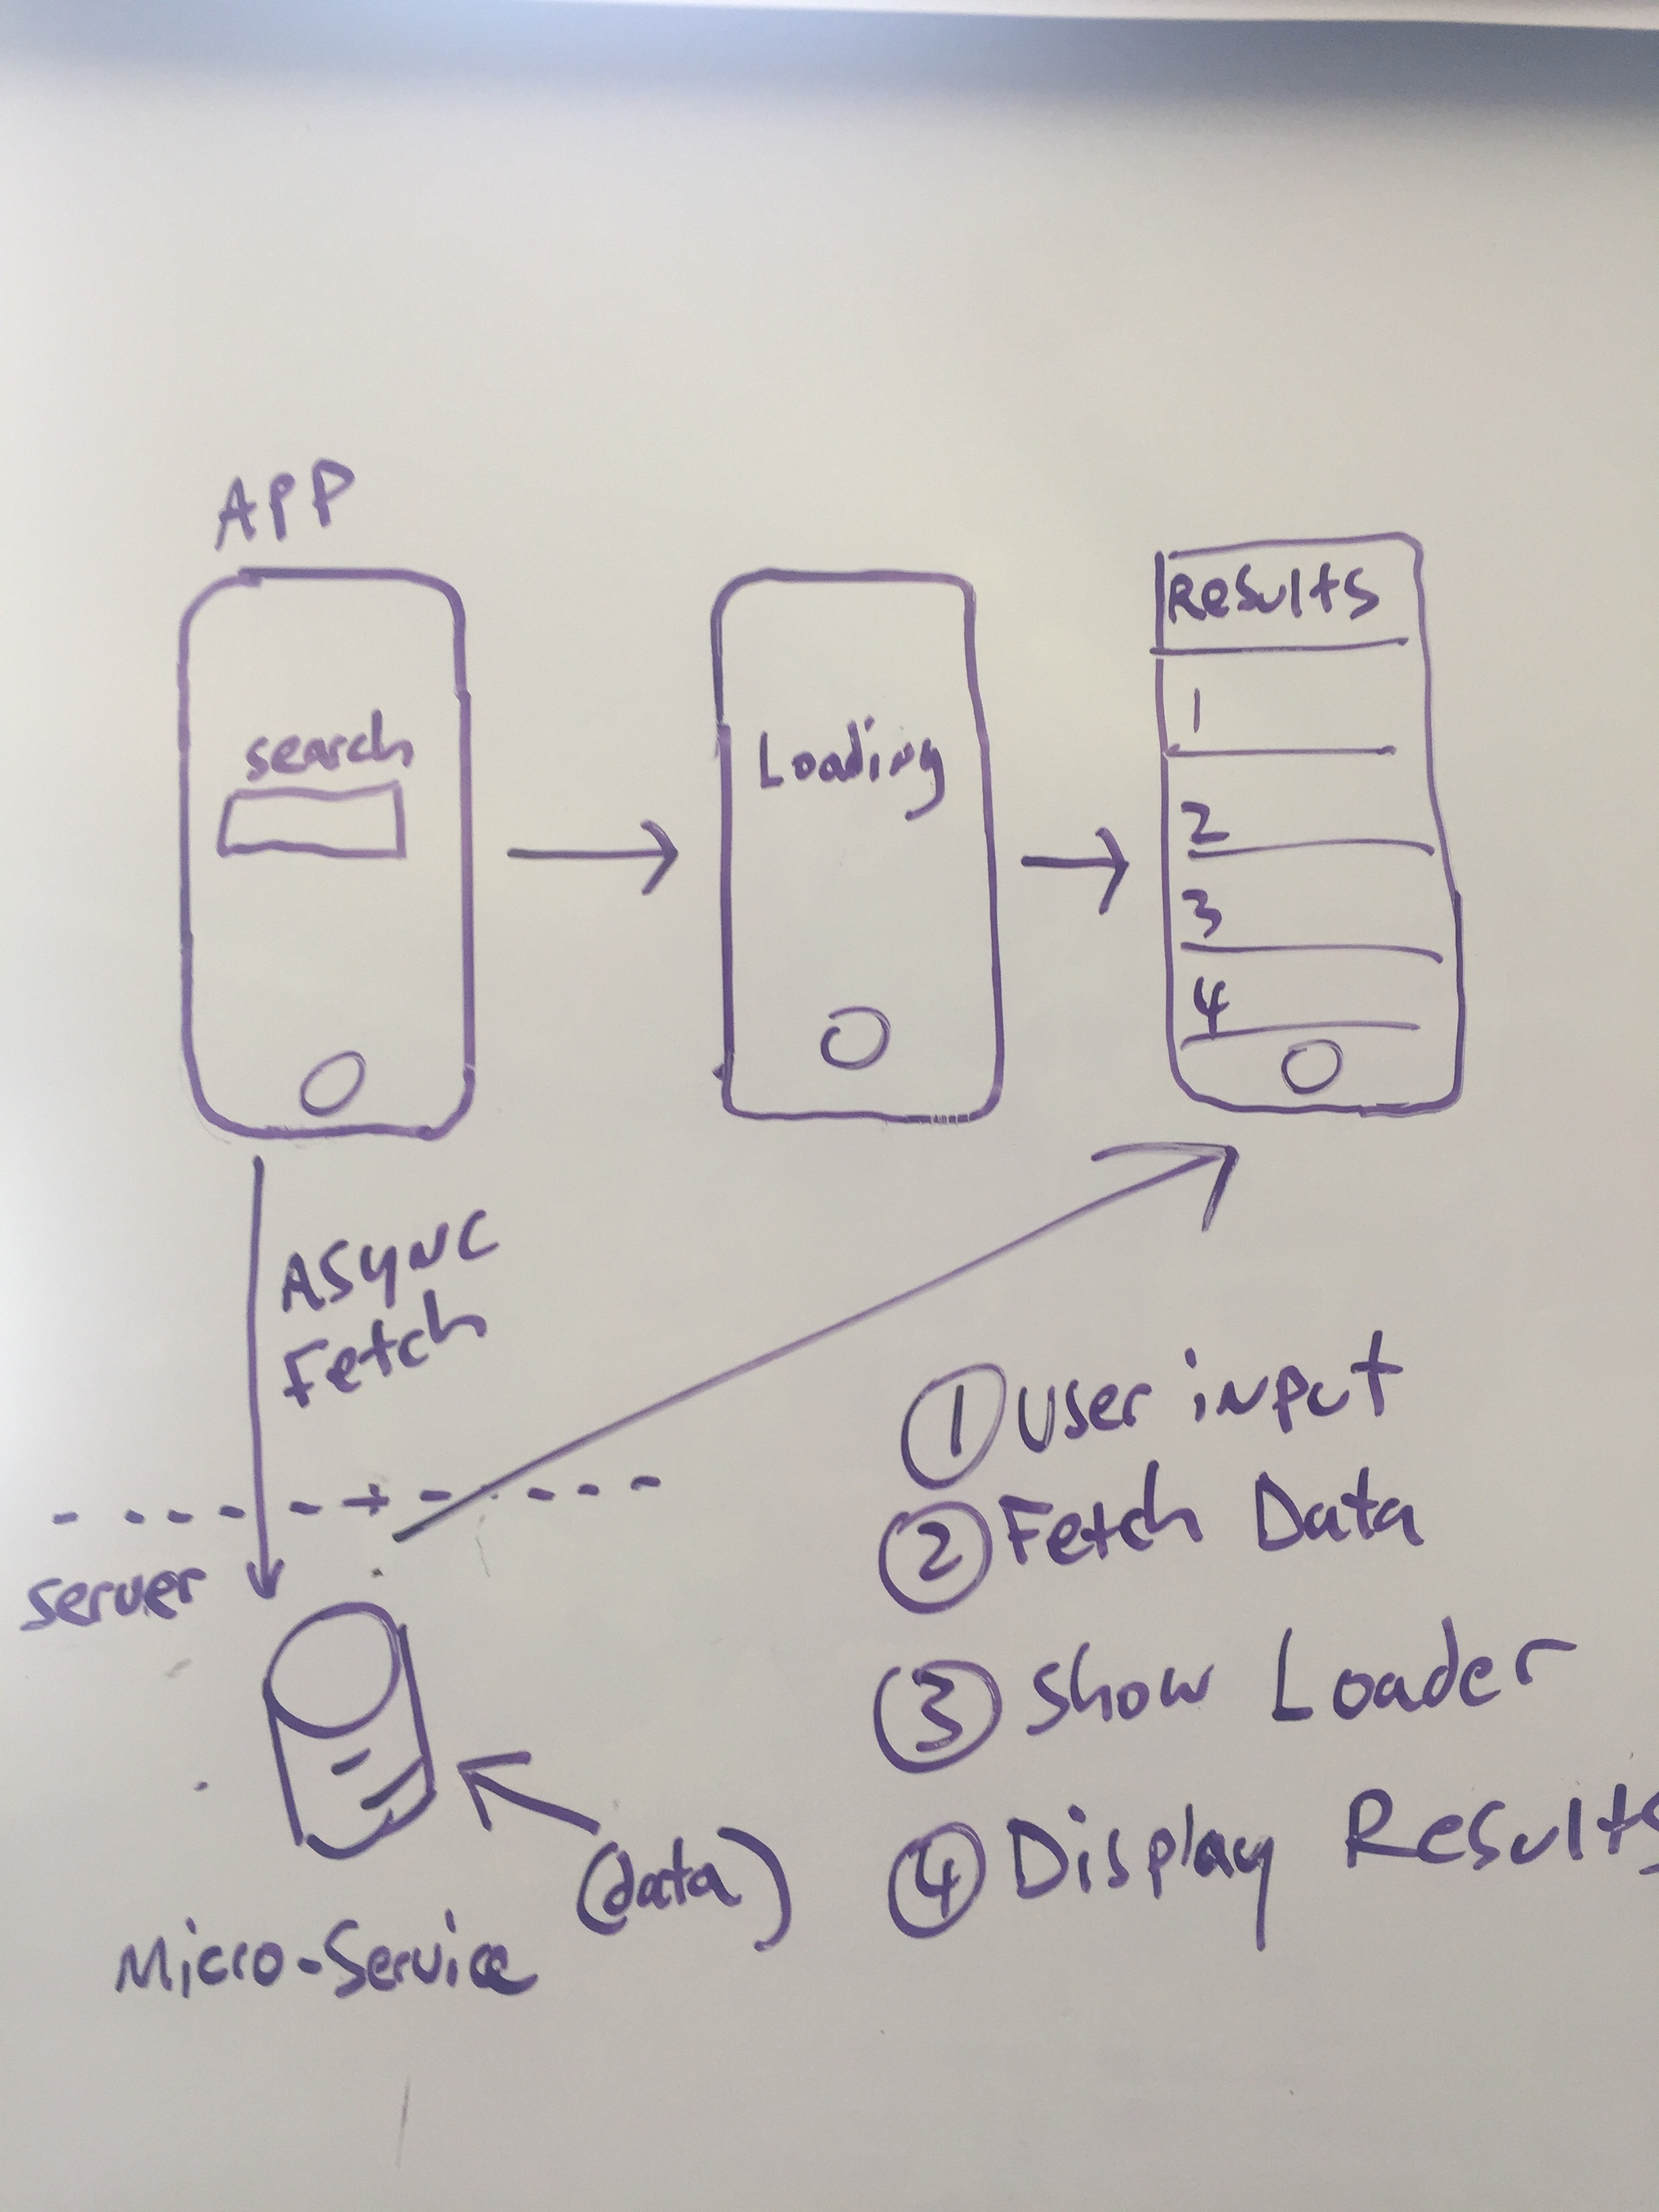 APP
search
Loading
Results
1
2
3
4
ASYNC
Fetch
server
Micro-Service
(data)
① User input
② Fetch Data
③ Show Loader
④ Display Results